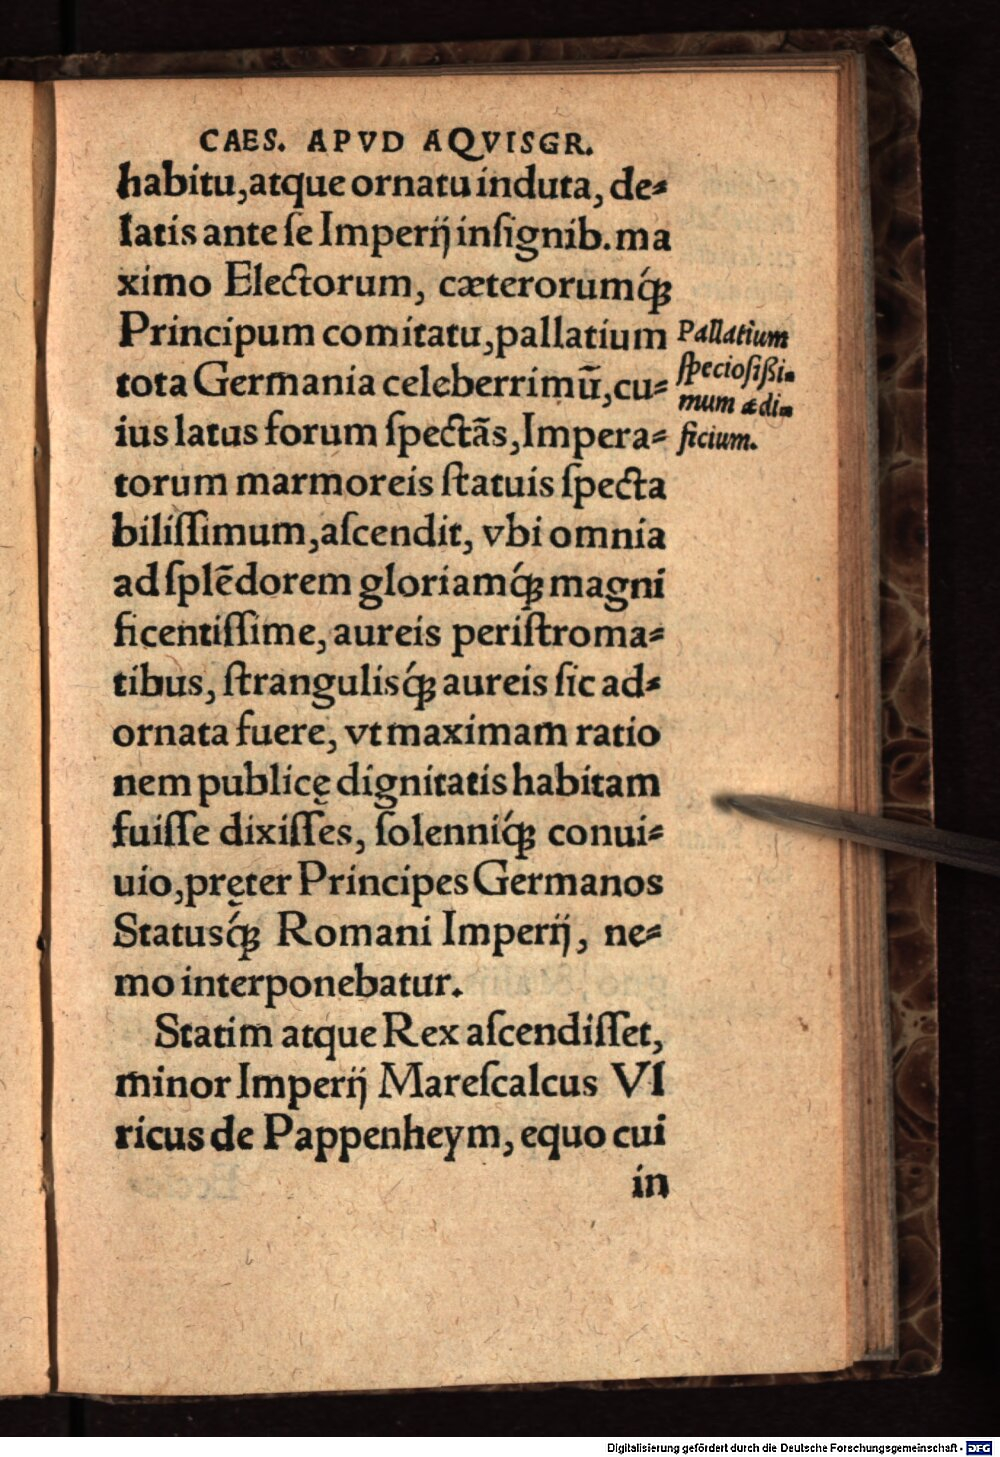 CAES. APVD AQVISGR.
habitu, atque ornatu induta, de-
latis ante ſe Imperij inſignib. ma
ximo Electorum, cæterorumq́ꝫ
Principum comitatu, pallatium
tota Germania celeberrimũ, cu-
ius latus forum ſpectãs, Impera-
torum marmoreis ſtatuis ſpecta
biliſſimum, aſcendit, vbi omnia
ad ſplẽdorem gloriamq́ꝫ magni
ficentiſſime, aureis periſtroma-
tibus, ſtrangulisq́ꝫ aureis ſic ad-
ornata fuere, vt maximam ratio
nem publicę dignitatis habitam
fuiſſe dixiſſes, ſolenniq́ꝫ conui-
uio, pręter Principes Germanos
Statusq́ꝫ Romani Imperij, ne-
mo interponebatur.
Statim atque Rex aſcendiſſet,
minor Imperij Mareſcalcus Vl
ricus de Pappenheym, equo cui
in
Pallatium
ſpecioſißi-
mum ædi-
ficium.
Digitalisierung gefördert durch die Deutsche Forschungsgemeinschaft - DFG